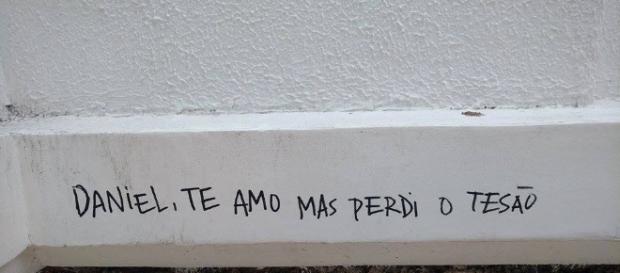 DANiEL, TE AMO MAS PERDi O TESÃO